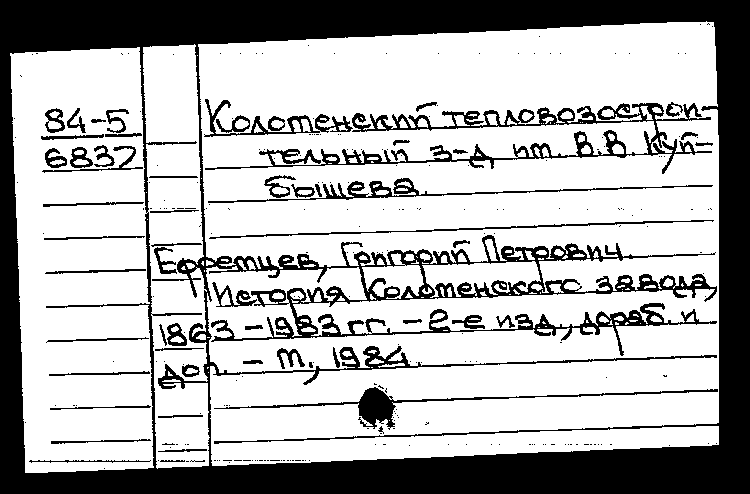 84-5
6837
Коломенский тепловозострои-
тельный з-д им. В.В. Куй-
бышева.
Ефремцев, Григорий Петрович.
История Коломенского завода,
1863-1983 гг. - 2-е изд., дораб. и
доп. - М., 1984.